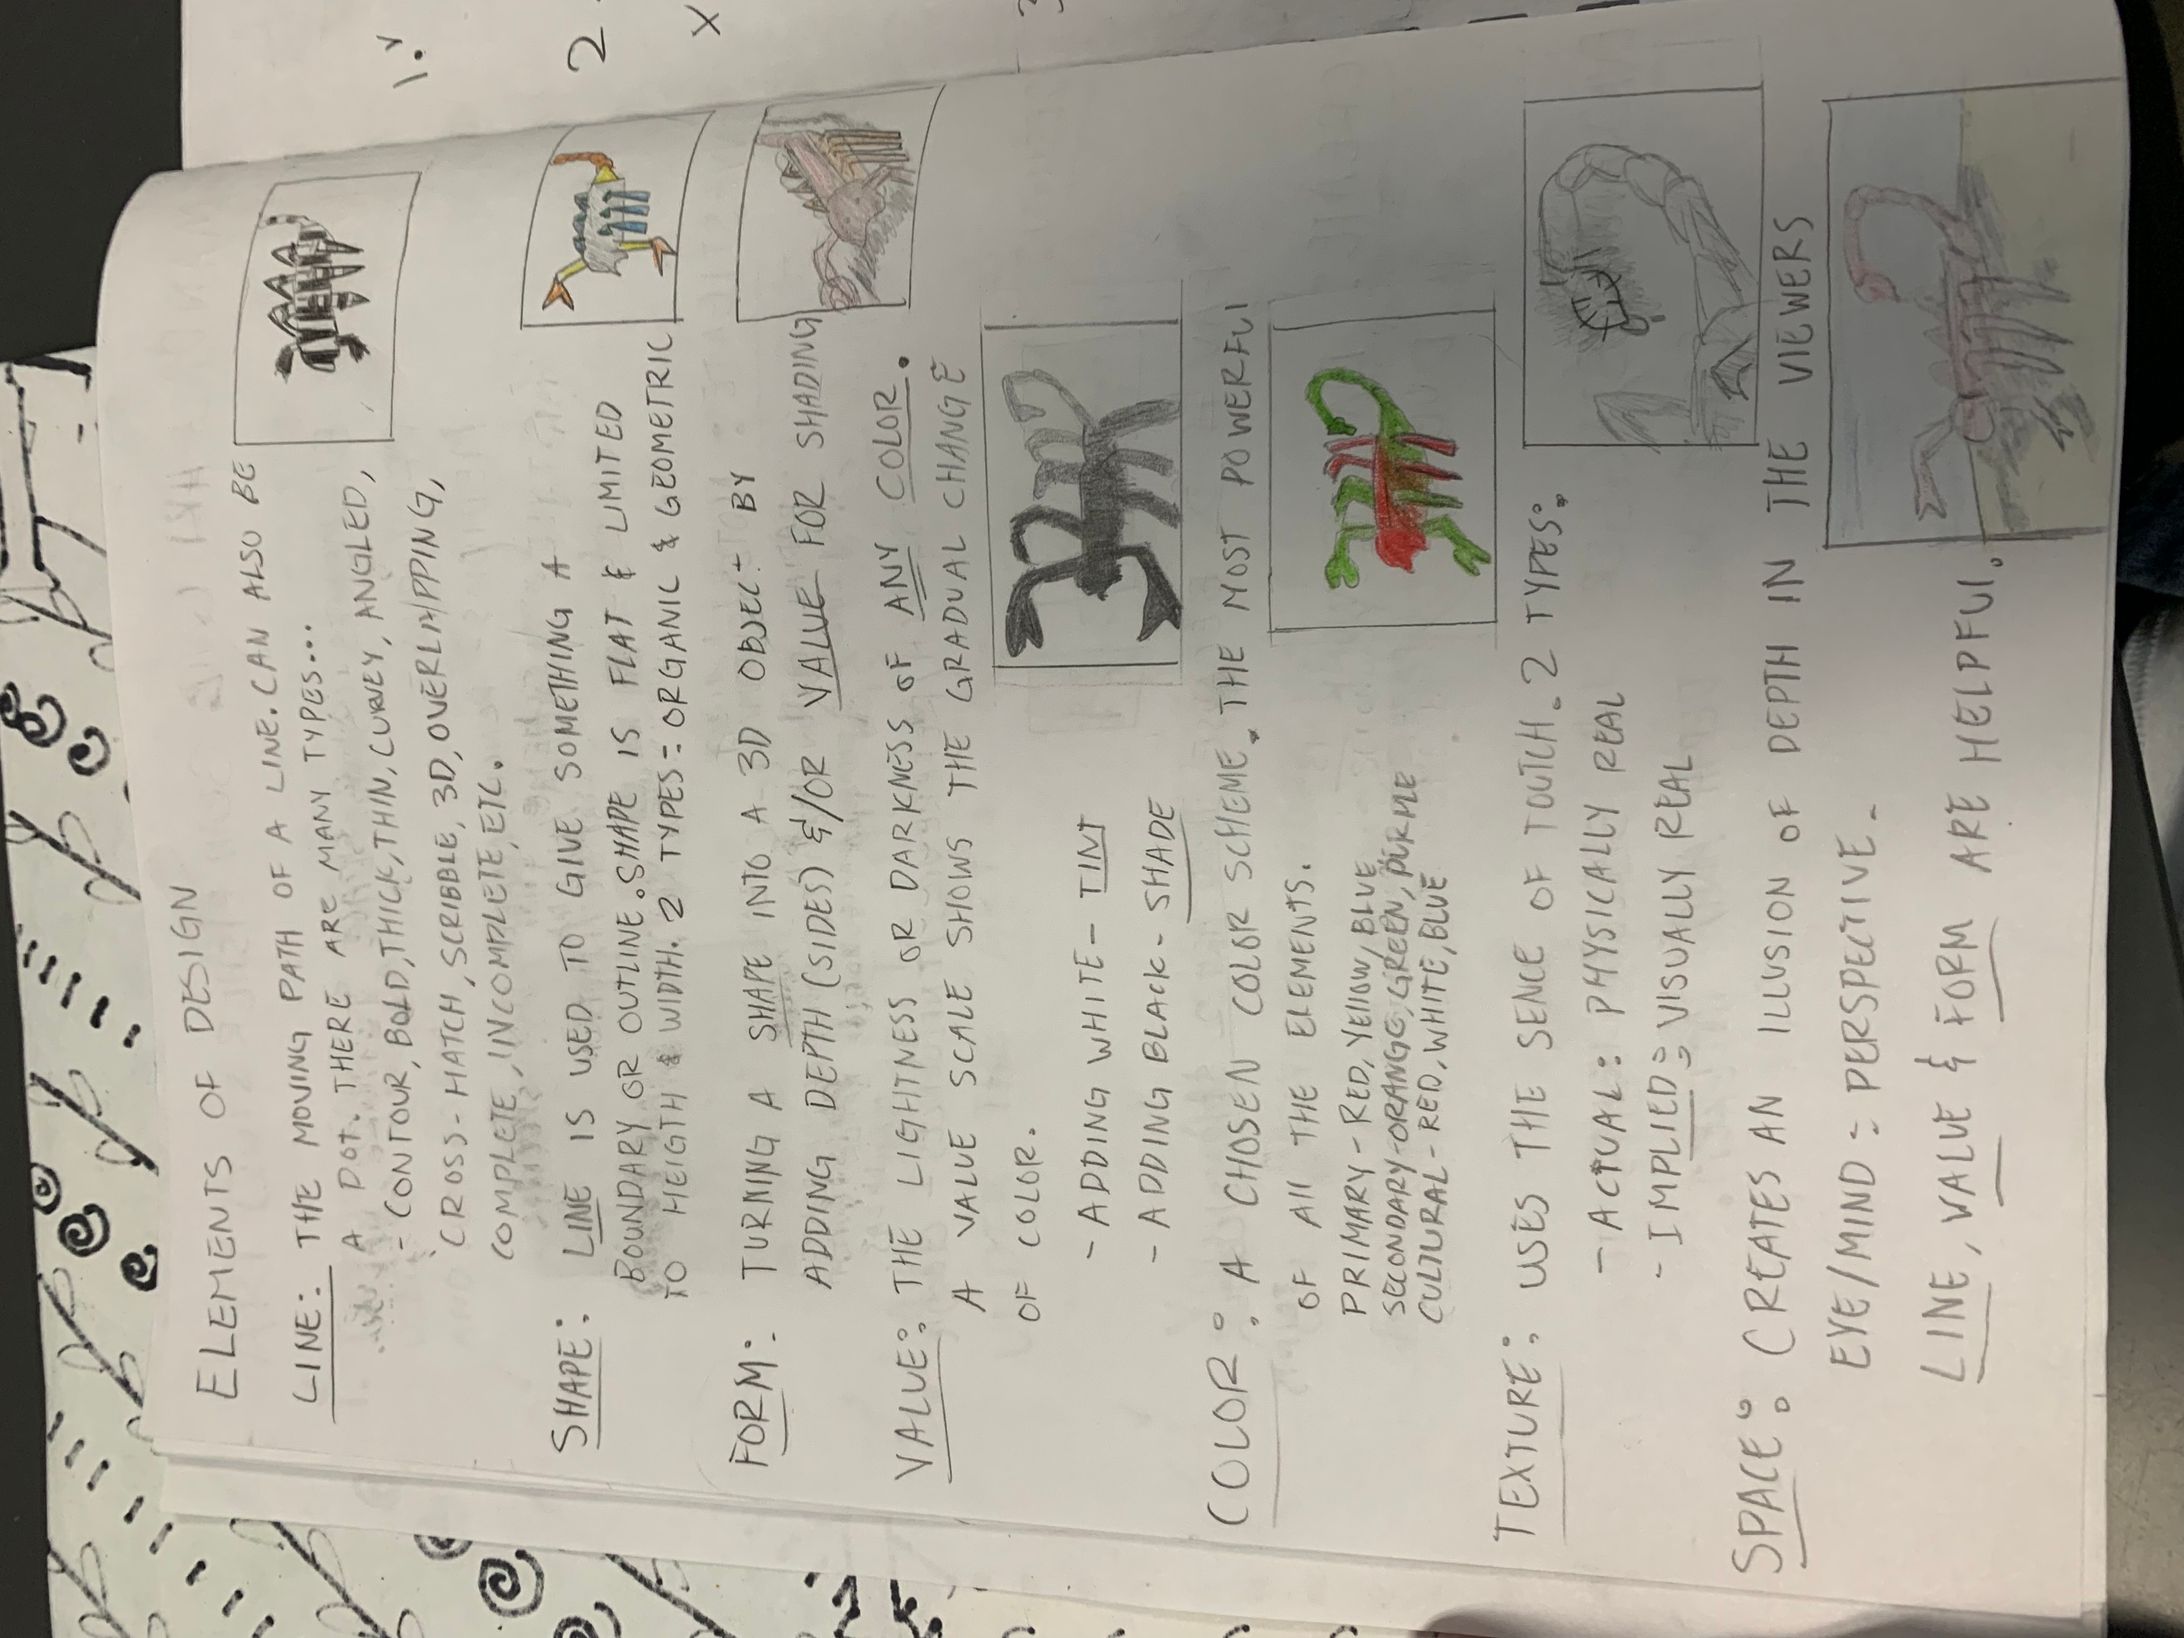 ELEMENTS OF DESIGN
LINE: THE MOVING PATH OF A LINE. CAN ALSO BE
A DOT. THERE ARE MANY TYPES...
- CONTOUR, BOLD, THICK, THIN, CURVEY, ANGLED,
CROSS-HATCH, SCRIBBLE, 3D, OVERLAPPING,
COMPLETE, INCOMPLETE, ETC.
SHAPE: LINE IS USED TO GIVE SOMETHING A
BOUNDARY OR OUTLINE. SHAPE IS FLAT & LIMITED
TO HEIGTH & WIDTH. 2 TYPES: ORGANIC & GEOMETRIC
FORM: TURNING A SHAPE INTO A 3D OBJECT BY
ADDING DEPTH (SIDES) &/OR VALUE FOR SHADING
VALUE: THE LIGHTNESS OR DARKNESS OF ANY COLOR.
A VALUE SCALE SHOWS THE GRADUAL CHANGE
OF COLOR.
- ADDING WHITE - TINT
- ADDING BLACK - SHADE
COLOR: A CHOSEN COLOR SCHEME. THE MOST POWERFUL
OF ALL THE ELEMENTS.
PRIMARY - RED, YELLOW, BLUE
SECONDARY - ORANGE, GREEN, PURPLE
CULTURAL - RED, WHITE, BLUE
TEXTURE: USES THE SENCE OF TOUTCH. 2 TYPES:
- ACTUAL: PHYSICALLY REAL
- IMPLIED: VISUALLY REAL
SPACE: CREATES AN ILLUSION OF DEPTH IN THE VIEWERS
EYE/MIND = PERSPECTIVE.
LINE, VALUE & FORM ARE HELPFUL.
2
X